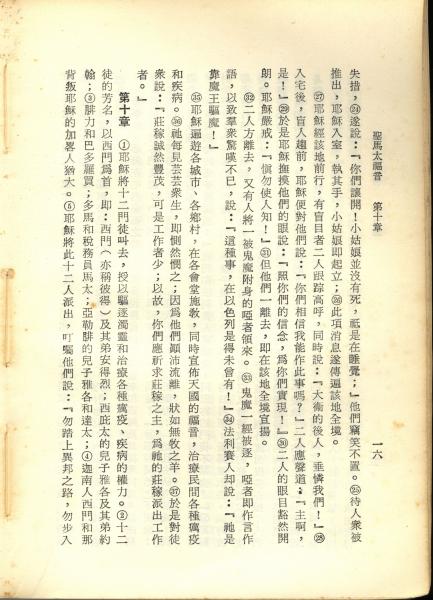 聖馬太福音　第十章
一六
失措，㉔遂說：『你們讓開！小姑娘並沒有死，祗是在睡覺；』他們竊笑不置。㉕待人衆被
推出，耶穌入室，執其手，小姑娘卽起立；㉖此項消息遂傳遍該地全境。
㉗耶穌經該地前行，有盲目者二人跟踪高呼，同時說：『大衞的後人，垂憐我們！』㉘
入宅後，盲人趨前，耶穌便對他們說：『你們相信我能作此事嗎？』二人應聲道：『主啊，
是！』㉙於是耶穌撫摸他們的眼說：『照你們的信念，爲你們實現！』㉚二人的眼目豁然開
朗。耶穌嚴戒：『愼勿使人知！』㉛但他們一離去，卽在該地全境宣揚。
㉜二人方離去，又有人將一被鬼魔附身的啞者領來。㉝鬼魔一經被逐，啞者卽作言
語，以致羣衆驚嘆不已，說：『這種事，在以色列是得未曾有！』㉞法利賽人却說：『祂是
靠魔王驅魔！』
㉟耶穌遍遊各城市、各鄉村，在各會堂施敎，同時宣佈天國的福音，治療民間各種癘疫
和疾病。㊱祂每見芸芸衆生，卽惻然憫之；因爲他們顚沛流離，狀如無牧之羊。㊲於是對徒
衆說：『莊稼誠然豐茂，可是工作者少；以故，你們應祈求莊稼之主，爲祂的莊稼派出工作
者。』
第十章　①耶穌將十二門徒叫去，授以驅逐濁靈和治療各種癘疫、疾病的權力。②十二
徒的芳名，以西門爲首，卽：西門（亦稱彼得）及其弟安得烈；西庇太的兒子雅各及其弟約
翰；③腓力和巴多羅買；多馬和稅務員馬太；亞勒腓的兒子雅各和達太；④迦南人西門和那
背叛耶穌的加畧人猶大。⑤耶穌將此十二人派出，叮囑他們說：『勿踏上異邦之路，勿步入